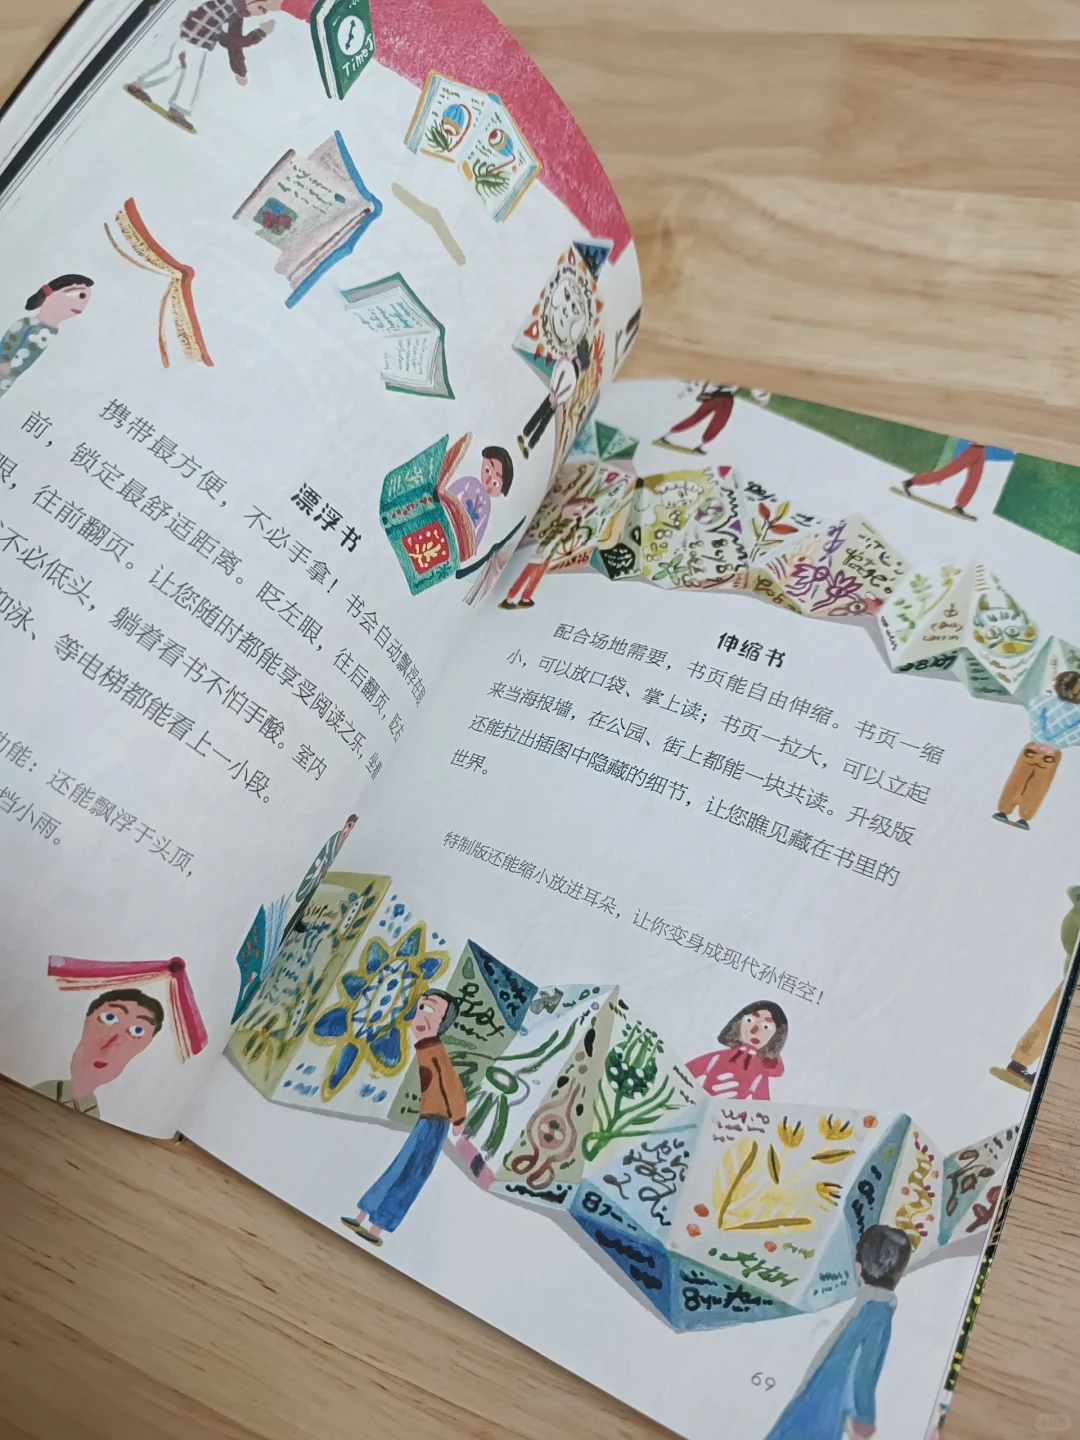 Time
漂浮书
携带最方便，不必手拿！书会自动飘浮在
前，锁定最舒适距离。眨左眼，往后翻页，眨右
眼，往前翻页。让您随时都能享受阅读之乐，
不必低头，躺着看书不怕手酸。室内
仰泳、等电梯都能看上一小段。
功能：还能飘浮于头顶，
挡小雨。
伸缩书
配合场地需要，书页能自由伸缩。书页一缩
小，可以放口袋、掌上读；书页一拉大，可以立起
来当海报墙，在公园、街上都能一块共读。升级版
还能拉出插图中隐藏的细节，让您瞧见藏在书里的
世界。
特制版还能缩小放进耳朵，让你变身成现代孙悟空！
69